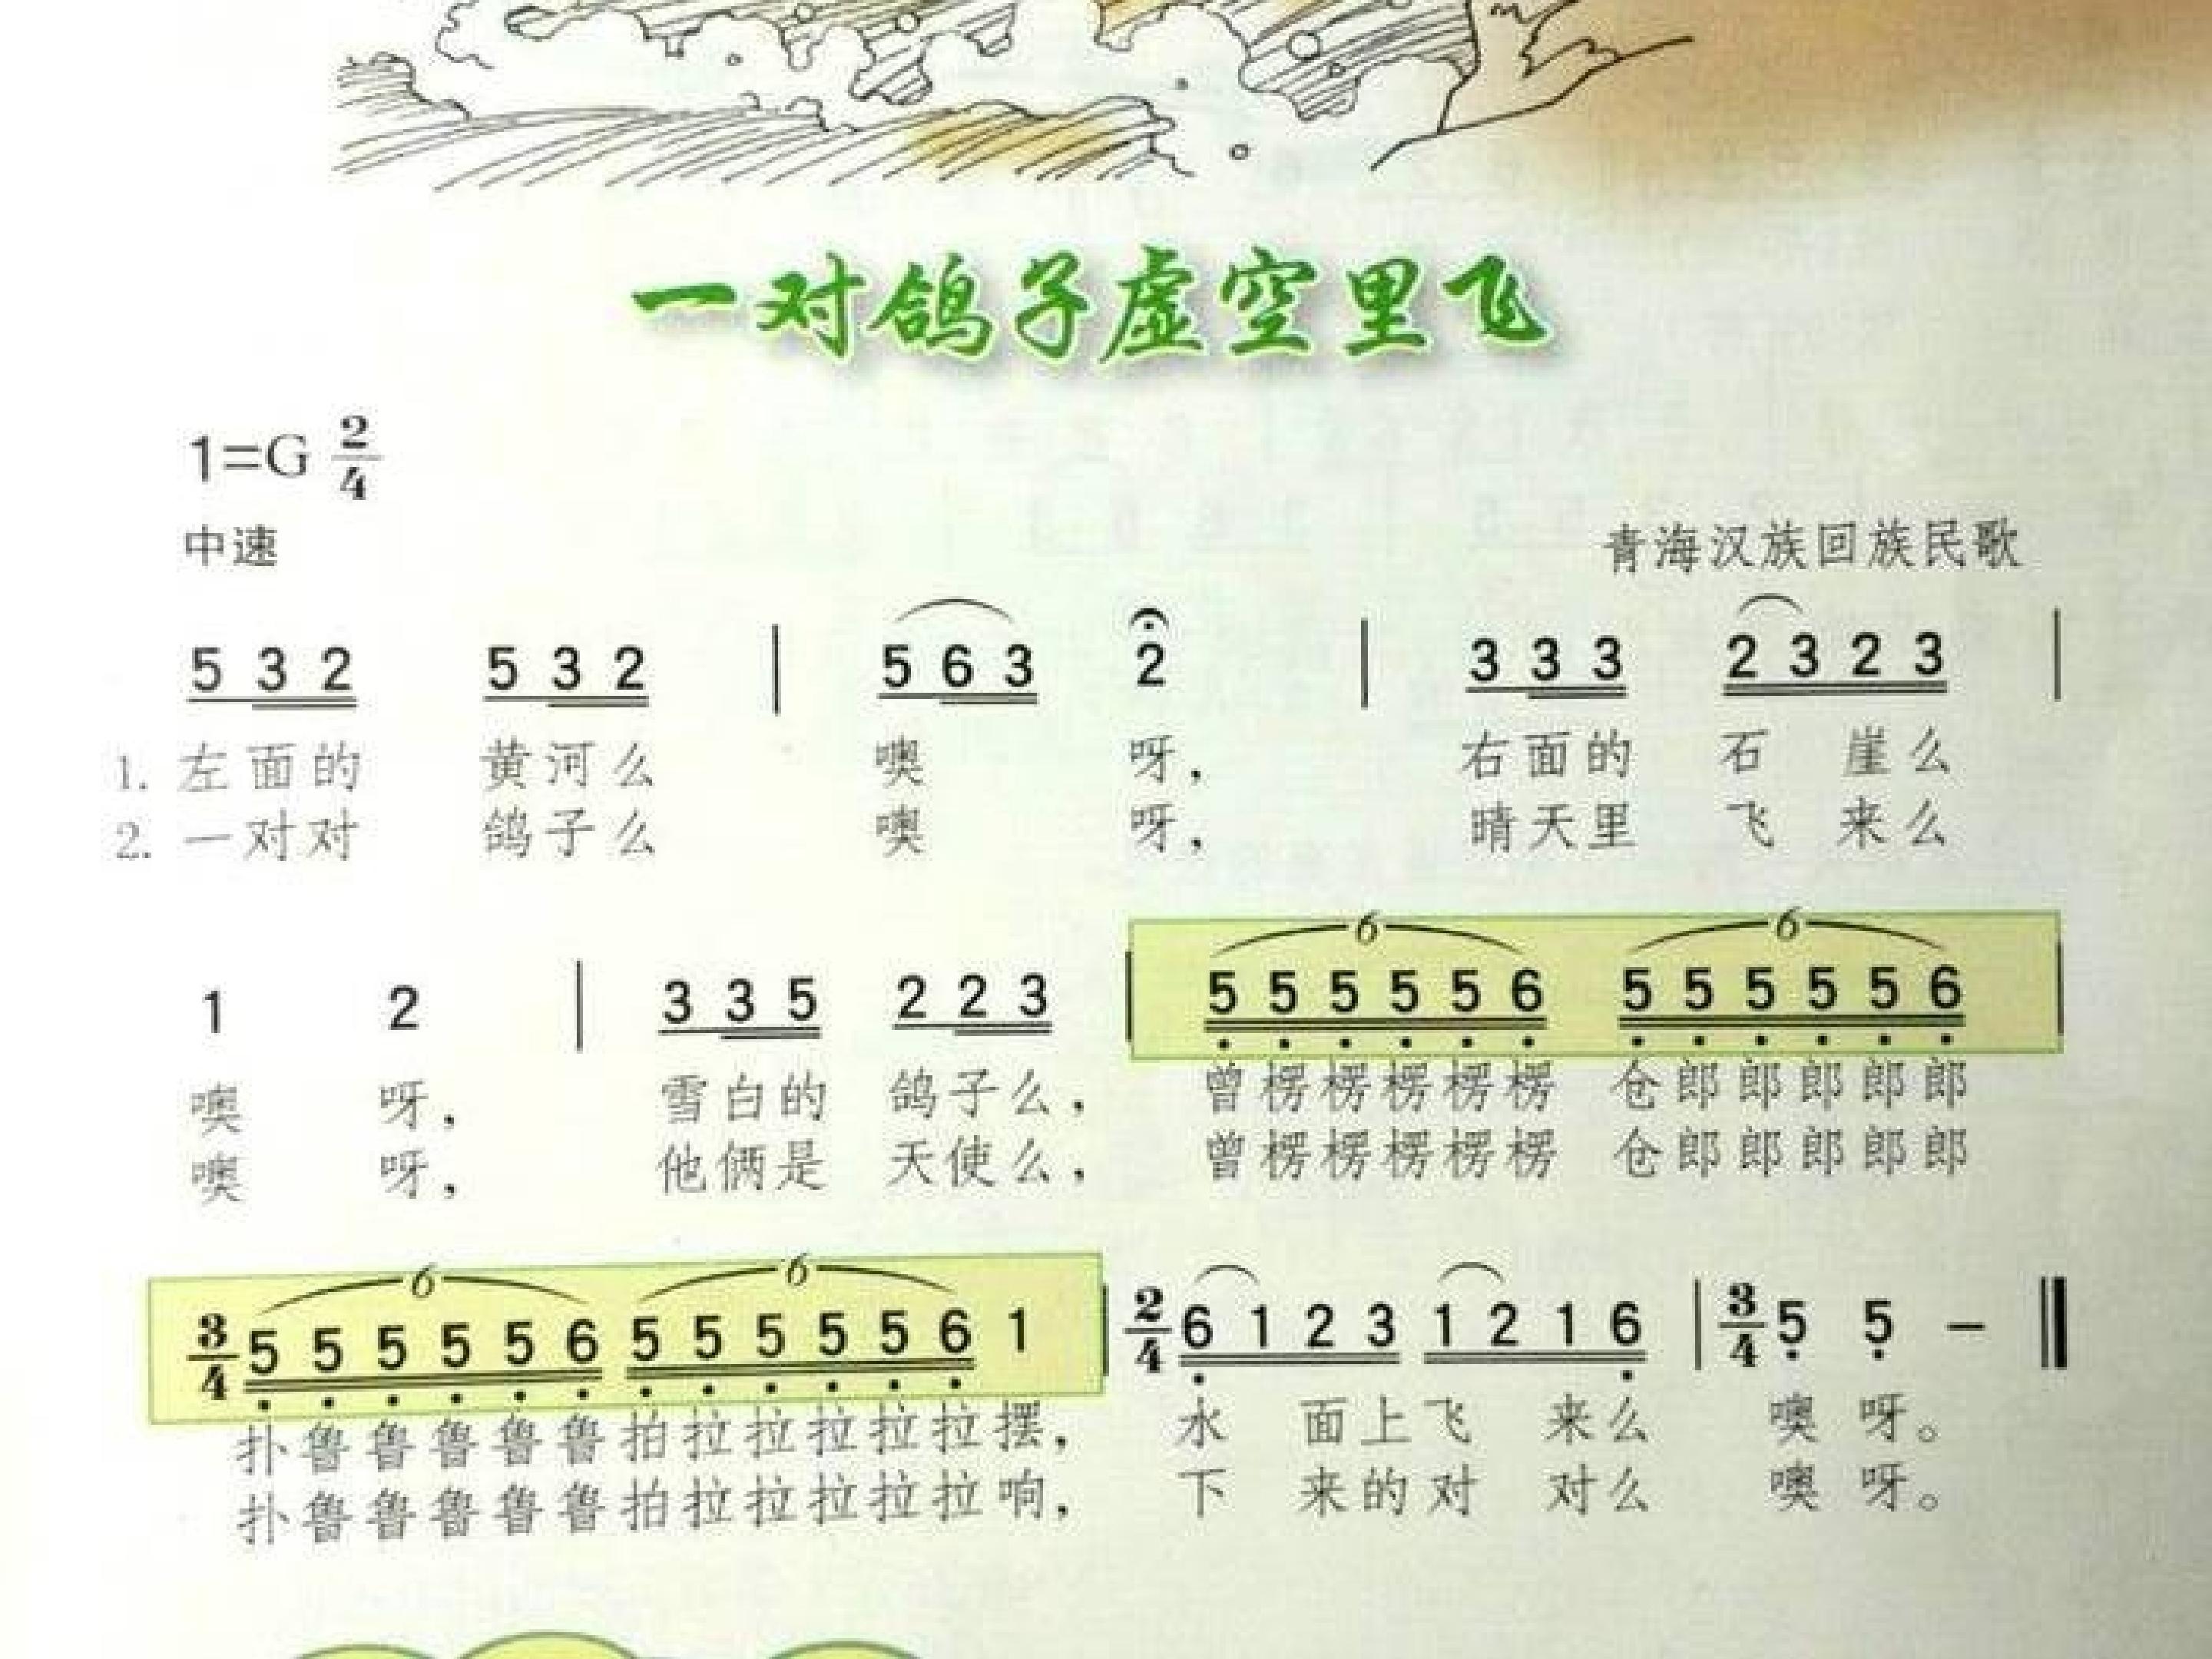 一对鸽子虚空里飞
1=G 2/4
中速
青海汉族回族民歌
5 3 2 5 3 2 | 5 6 3 2 | 3 3 3 2 3 2 3 |
1. 左面的 黄河么 噢 呀, 右面的 石 崖么
2. 一对对 鸽子么 噢 呀, 晴天里 飞 来么
6 6
1 2 | 3 3 5 2 2 3 | 5 5 5 5 5 6 5 5 5 5 5 6 |
噢 呀, 雪白的 鸽子么, 曾楞楞楞楞楞 仓郎郎郎郎郎
噢 呀, 他俩是 天使么, 曾楞楞楞楞楞 仓郎郎郎郎郎
6 6
3/4 5 5 5 5 5 6 5 5 5 5 5 6 1 | 2/4 6 1 2 3 1 2 1 6 | 3/4 5 5 – ‖
扑鲁鲁鲁鲁鲁拍拉拉拉拉拉摆, 水 面上飞 来么 噢 呀。
扑鲁鲁鲁鲁鲁拍拉拉拉拉拉响, 下 来的对 对么 噢 呀。